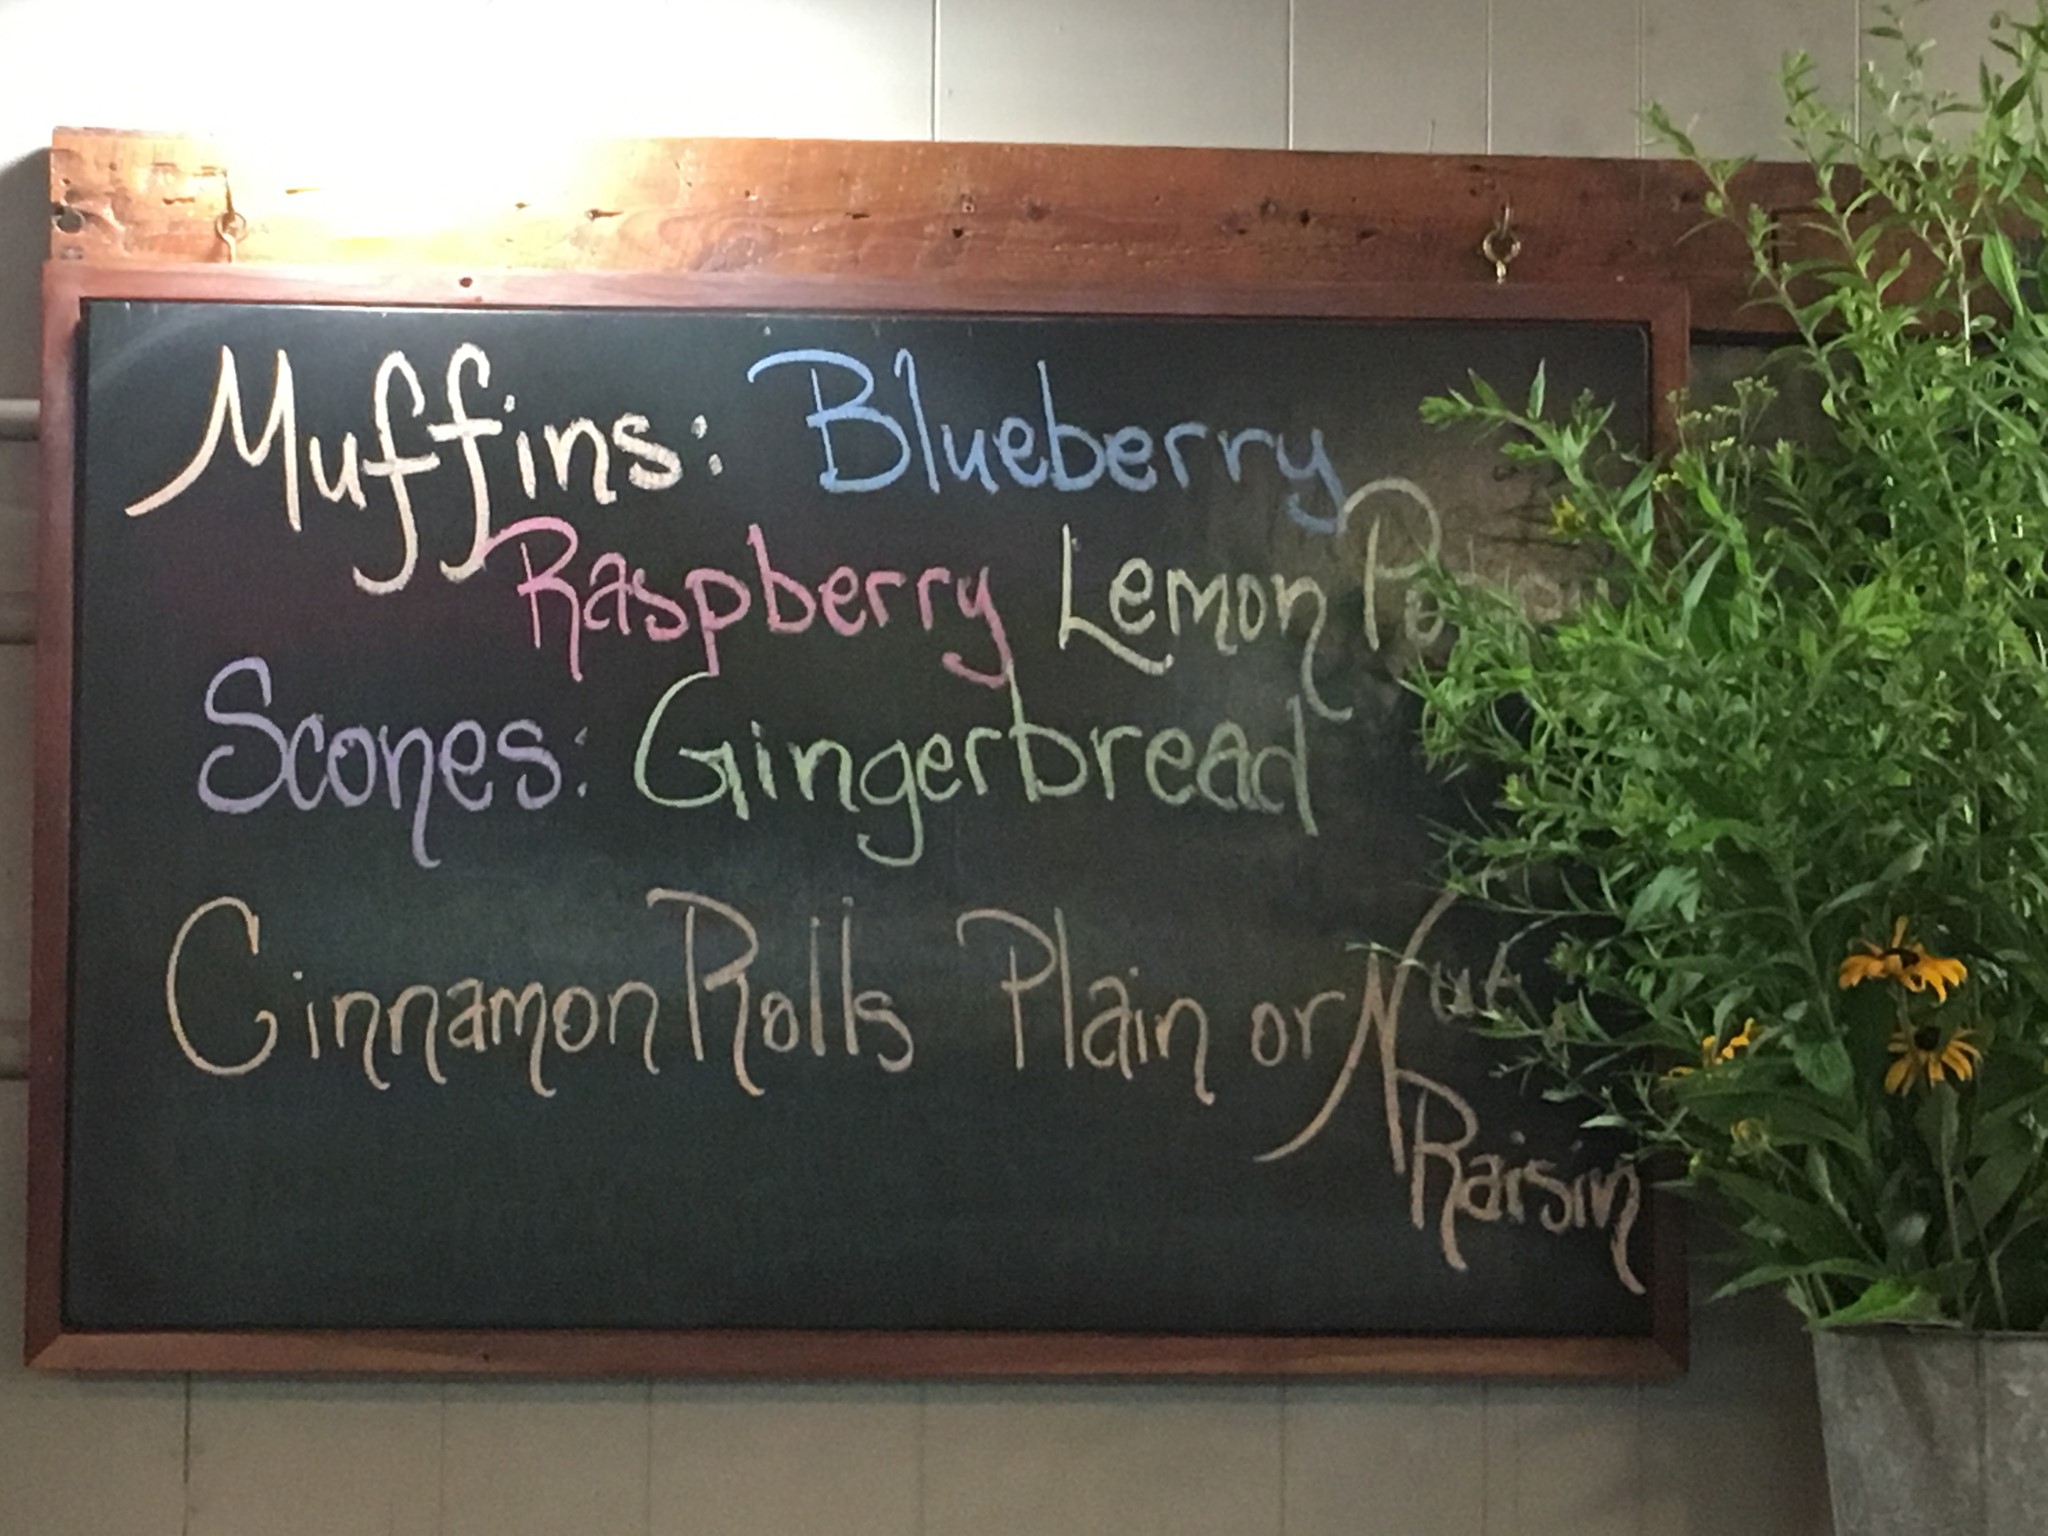 Muffins: Blueberry
Raspberry Lemon
Scones: Gingerbread
Cinnamon Rolls Plain or Nut
Raisin